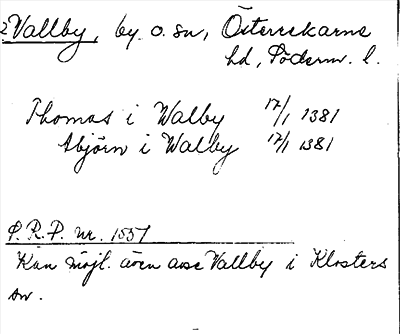 2 Vallby, by o. sn, Österrekarne
hd, Söderm. l.
Thomas i Walby 17/1 1381
Abjörn i Walby 17/1 1381
S.R.P. nr. 1557
Kan möjl. även avse Vallby i Klosters
sn.